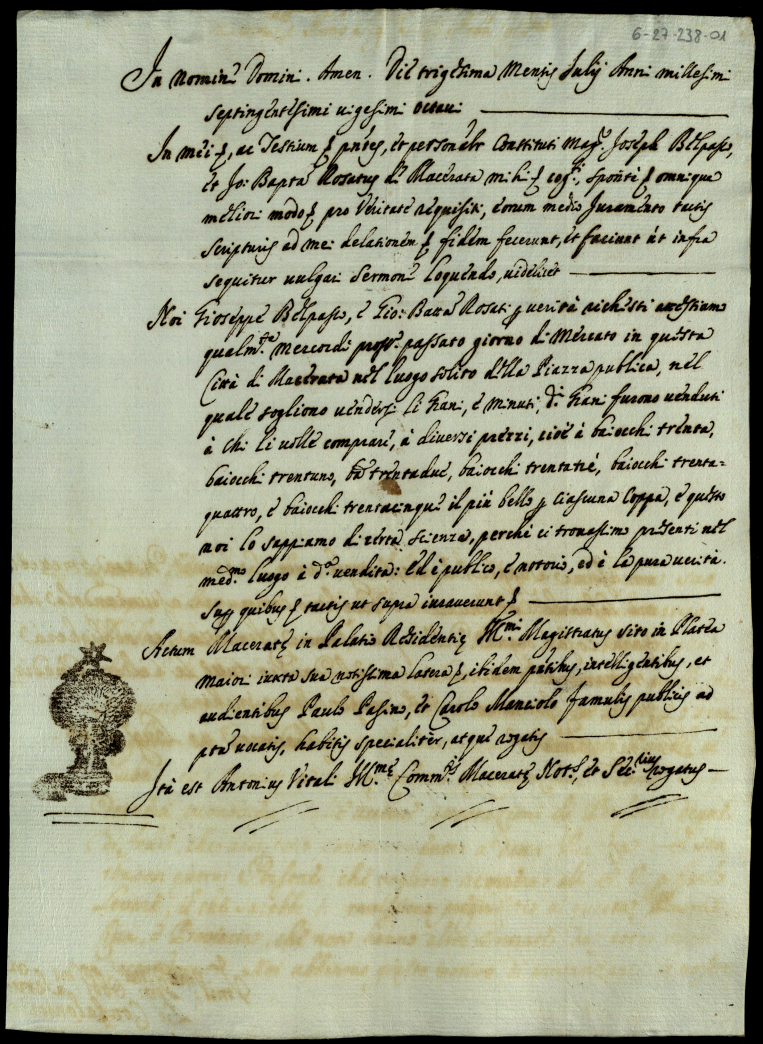 6-27-238-01
In nomine Domini. Amen. Die trigesima Mensis Julij Anni millesimi
septingentesimi vigesimi octavi
In mei ac Testium et personalr Constituti Mag. Joseph Belpasso,
et Jo: Bapta Rosatus de Macerata mihi cog. sponte omnique
meliori modo pro veritate requisiti, eorum medio Juramento tactis
scripturis ad mei delationem fidem fecerunt, et faciunt ut infra
sequitur vulgari sermone loquendo, videlicet
Noi Gioseppe Belpasso, e Gio: Batta Rosati p verità richiesti attestiamo
qualmte mercordi pross. passato giorno di Mercato in questa
Città di Macerata nel luogo solito della Piazza publica, nel
quale sogliono vendersi li Grani, e minuti, di Grani furono venduti
à chi li volle comprare, à diversi prezzi, cioè à baiocchi trenta,
baiocchi trentuno, ba trentadue, baiocchi trentatré, baiocchi trenta=
quattro, e baiocchi trentacinque il più bello p ciascuna Coppa, e questo
noi lo sappiamo di certa scienza, perche ci trovassimo presenti nel
medmo luogo à da vendita: ed è publico, e notorio, ed è la pura verità.
Supp quibus tactis ut supra iuraverunt
Actum Macerate in Palatio Residentie Illmi Magistratus sito in Platea
maiori iuxta sua notissima latera, ibidem pntibus, intelligentibus, et
audientibus Paulo Pasino, et Carolo Manciolo famulis publicis ad
pta vocatis, habitis specialiter, atque rogatis
Ita est Antonius Vitali Illme Commtis Macerate Nots, et Secrius rogatus